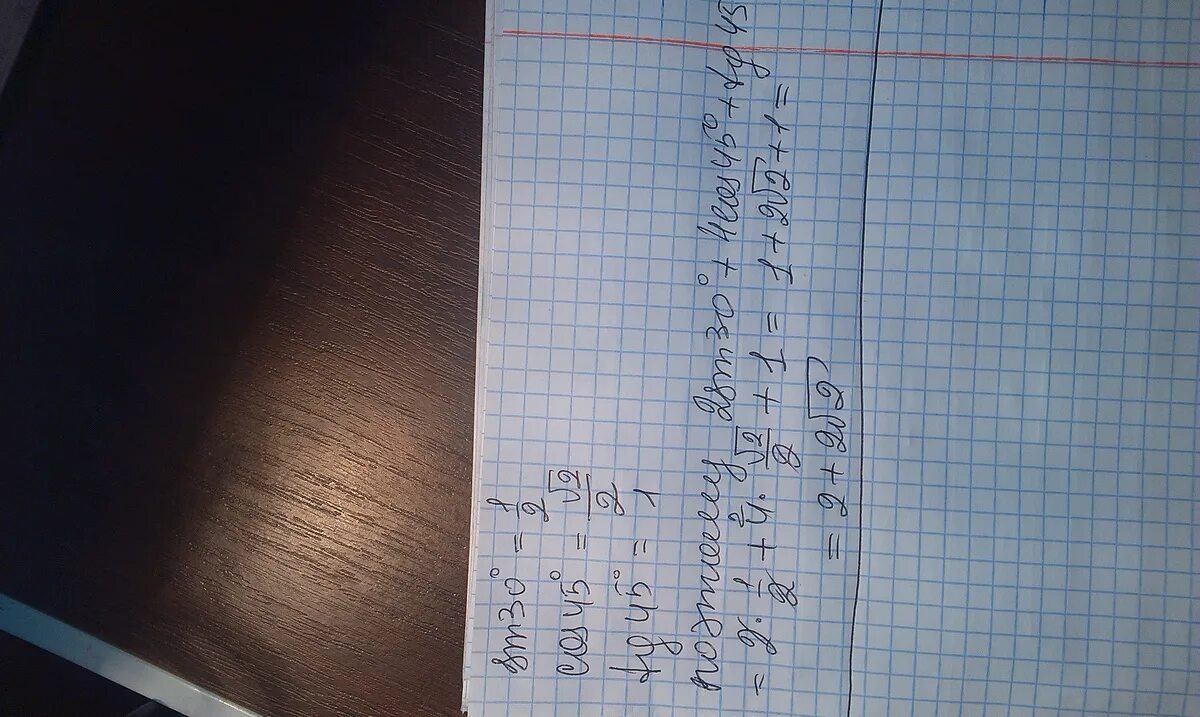 sin30° = 1/2
cos45° = √2/2
tg45° = 1
поэтому 2sin30° + 4cos45° + tg45
= 2 · 1/2 + 4² · √2/2 + 1 = 1 + 2√2 + 1 =
= 2 + 2√2